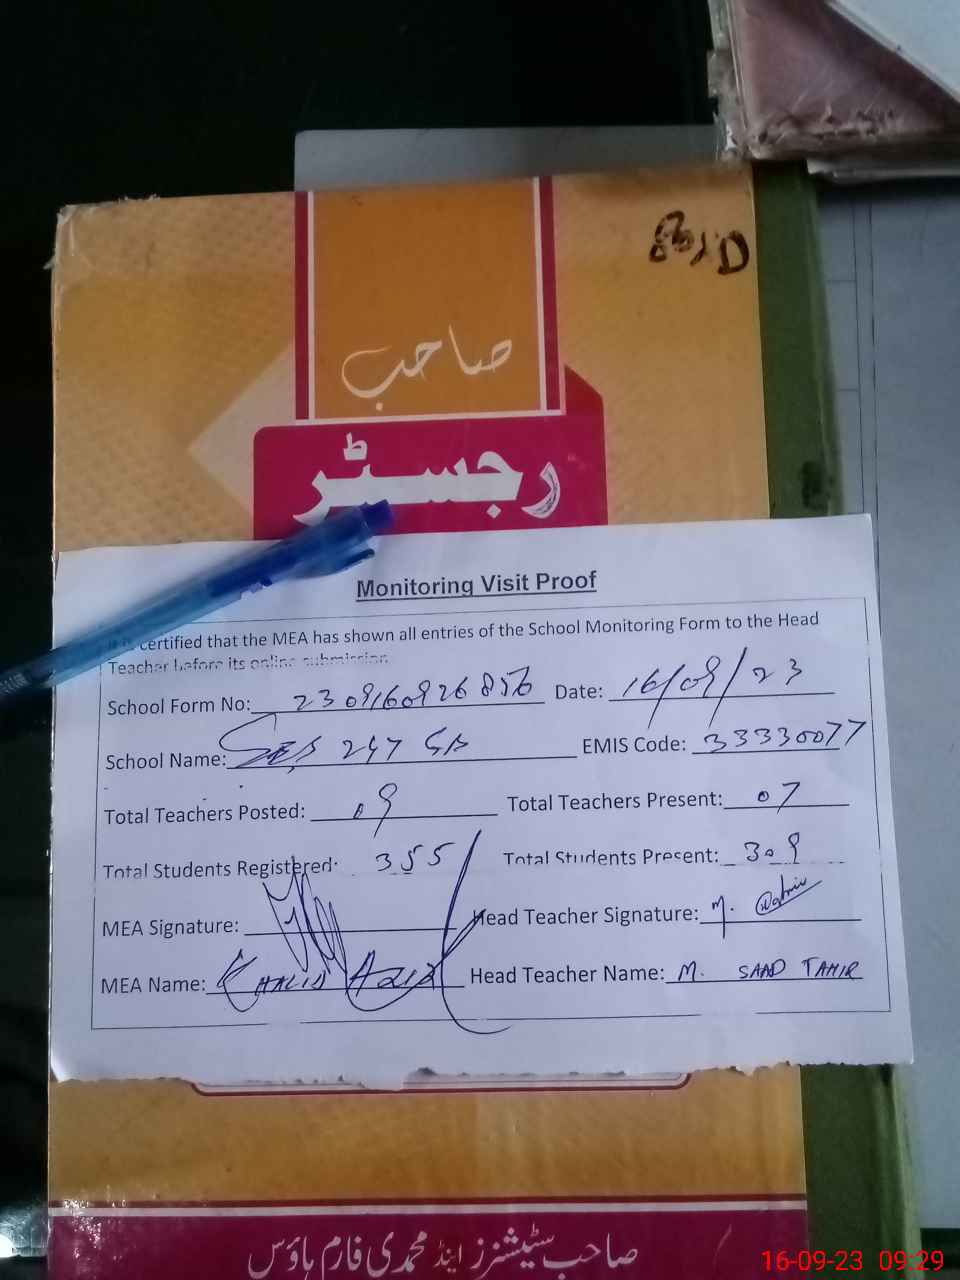 صاحب
رجسٹر
Monitoring Visit Proof
It is certified that the MEA has shown all entries of the School Monitoring Form to the Head
Teacher before its online submission
School Form No: 2309160926856 Date: 16/09/23
School Name: 247 GB EMIS Code: 33330077
Total Teachers Posted: 09 Total Teachers Present: 07
Total Students Registered: 355 Total Students Present: 309
MEA Signature: Head Teacher Signature: M.
MEA Name: KHALID AZIZ Head Teacher Name: M. SAAD TAHIR
صاحب سٹیشنرز اینڈ محمدی فارم ہاؤس
16-09-23 09:29